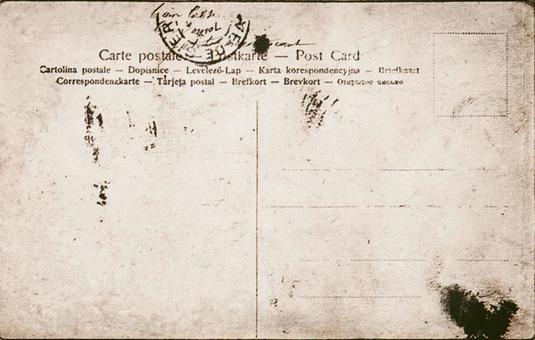 Carte postale — Postkarte — Post Card
Cartolina postale — Dopisnice — Levelező-Lap — Karta korespondencyjna — Briefkaart
Correspondenzkarte — Tarjeta postal — Brefkort — Brevkort — Открытое письмо